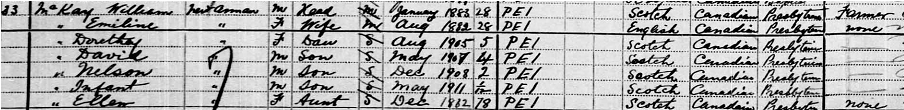 33 McKay William New Annan M Head M January 1883 28 PEI Scotch Canadian Presbyterian Farmer
" Emiline " F Wife M Aug 1882 28 PEI English Canadian Presbyterian none
" Dorothy " F Dau S Aug 1905 5 PEI Scotch Canadian Presbyterian
" David " M Son S May 1907 4 PEI Scotch Canadian Presbyterian
" Nelson " M Son S Dec 1908 2 PEI Scotch Canadian Presbyterian
" Infant " M Son S May 1911 PEI Scotch Canadian Presbyterian
" Ellen " F Aunt S Dec 1832 78 PEI Scotch Canadian Presbyterian none